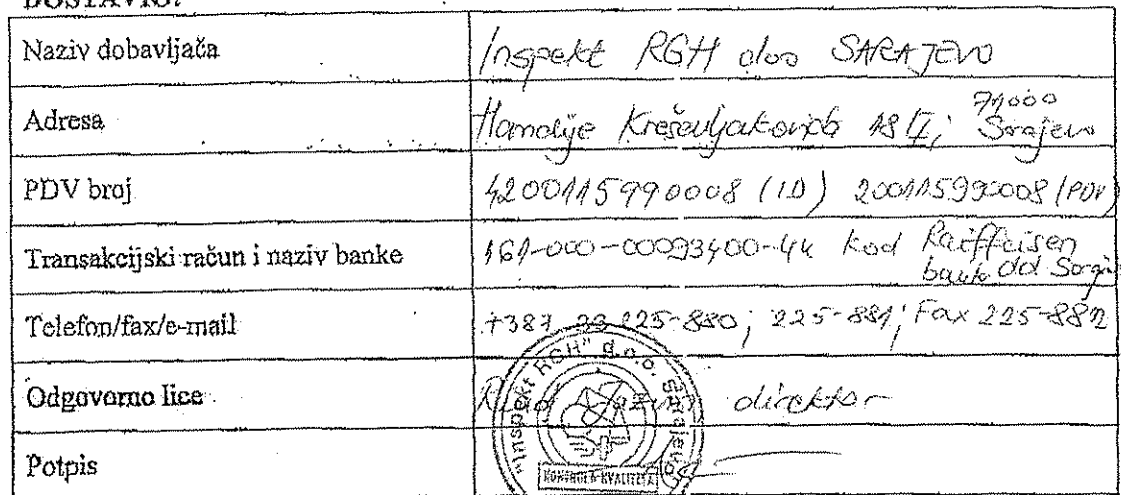 DOSTAVIO:
Naziv dobavljača Inspekt RGH doo SARAJEVO
Adresa Hamdije Kreševljakovića 18/I; 71000 Sarajevo
PDV broj 4200115990008 (ID) 200115990008 (PDV)
Transakcijski račun i naziv banke 161-000-00093400-44 kod Raiffeisen
bank dd Saraj
Telefon/fax/e-mail +387 33 225-880; 225-881; Fax 225-882
Odgovorno lice direktor
Potpis
"Inspekt RGH" d.o.o. Sarajevo
KONTROLA KVALITETA